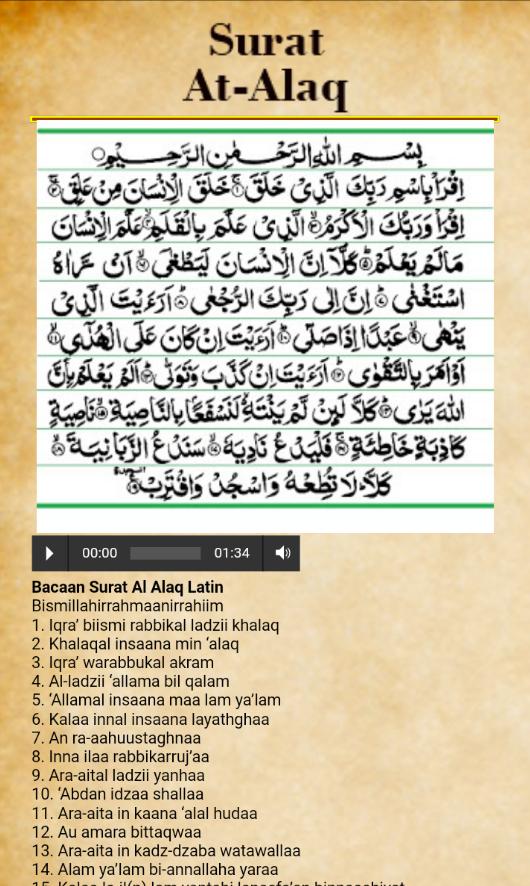 Surat
At-Alaq
بِسْمِ اللهِ الرَّحْمٰنِ الرَّحِيْمِ
اِقْرَأْ بِاسْمِ رَبِّكَ الَّذِىْ خَلَقَ ۝۱ خَلَقَ الْاِنْسَانَ مِنْ عَلَقٍ ۝۲
اِقْرَأْ وَرَبُّكَ الْاَكْرَمُ ۝۳ الَّذِىْ عَلَّمَ بِالْقَلَمِ ۝۴ عَلَّمَ الْاِنْسَانَ
مَالَمْ يَعْلَمْ ۝۵ كَلَّآ اِنَّ الْاِنْسَانَ لَيَطْغٰى ۝۶ اَنْ رَّاٰهُ
اسْتَغْنٰى ۝۷ اِنَّ اِلٰى رَبِّكَ الرُّجْعٰى ۝۸ اَرَءَيْتَ الَّذِىْ
يَنْهٰى ۝۹ عَبْدًا اِذَا صَلّٰى ۝۱۰ اَرَءَيْتَ اِنْ كَانَ عَلَى الْهُدٰٓى ۝۱۱
اَوْ اَمَرَ بِالتَّقْوٰى ۝۱۲ اَرَءَيْتَ اِنْ كَذَّبَ وَتَوَلّٰى ۝۱۳ اَلَمْ يَعْلَمْ بِاَنَّ
اللهَ يَرٰى ۝۱۴ كَلَّا لَىِٕنْ لَّمْ يَنْتَهِ لَنَسْفَعًا بِالنَّاصِيَةِ ۝۱۵ نَاصِيَةٍ
كَاذِبَةٍ خَاطِئَةٍ ۝۱۶ فَلْيَدْعُ نَادِيَهٗ ۝۱۷ سَنَدْعُ الزَّبَانِيَةَ ۝۱۸
كَلَّا لَا تُطِعْهُ وَاسْجُدْ وَاقْتَرِبْ ۝۱۹
00:00 01:34
Bacaan Surat Al Alaq Latin
Bismillahirrahmaanirrahiim
1. Iqra’ biismi rabbikal ladzii khalaq
2. Khalaqal insaana min ‘alaq
3. Iqra’ warabbukal akram
4. Al-ladzii ‘allama bil qalam
5. ‘Allamal insaana maa lam ya’lam
6. Kalaa innal insaana layathghaa
7. An ra-aahuustaghnaa
8. Inna ilaa rabbikarruj’aa
9. Ara-aital ladzii yanhaa
10. ‘Abdan idzaa shallaa
11. Ara-aita in kaana ‘alal hudaa
12. Au amara bittaqwaa
13. Ara-aita in kadz-dzaba watawallaa
14. Alam ya’lam bi-annallaha yaraa